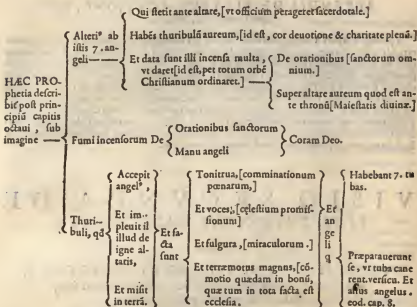 HÆC PRO-
phetia descri-
bit᷒ post prin-
cipiū capitis
octaui, sub
imagine
Alteri᷒ ab
istis 7. an-
geli
Qui stetit ante altare, [vt officium perageret sacerdotale.]
Habēs thuribulū aureum, [id est, cor deuotione & charitate plenū.]
Et data sunt illi incensa multa,
vt daret [id est, per totum orbē
Christianum ordinaret.]
De orationibus [sanctorum om-
nium.]
Super altare aureum quod est an-
te thronū [Maiestatis diuinæ.]
Fumi incensorum De
Orationibus sanctorum
Manu angeli
Coram Deo.
Thuri-
buli, qd
Accepit
angel᷒,
Et im-
pleuit il
illud de
igne al-
taris,
Et misit
in terrā.
Et fa-
cta
sunt
Tonitrua, [comminationum
pœnarum,]
Et voces, [cęlestium promis-
sionum]
Et fulgura, [miraculorum.]
Et terræmotus magnus, [cō-
motio quædam in bonū,
quæ tum in tota facta est
ecclesia.
Et
an
ge
li
q
Habebant 7. tu
bas.
Præparauerunt
se, vt tuba cane
rent. versic. 6. Et
alius angelus.
eod. cap. 8.